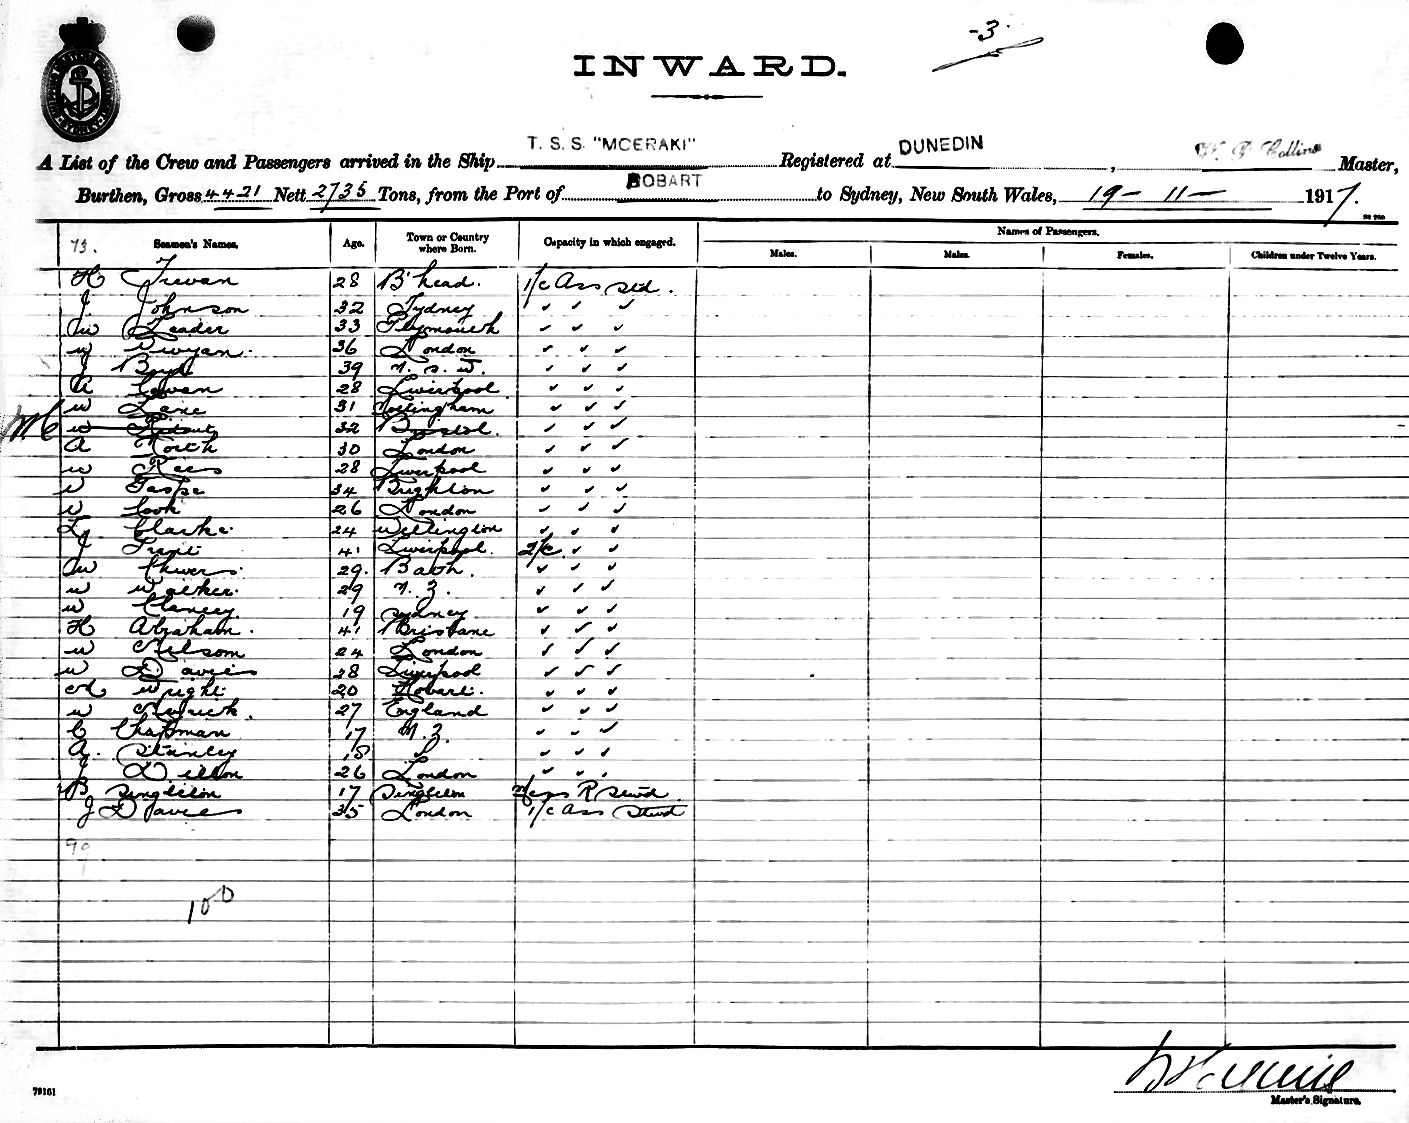 -3-
INWARD.
A List of the Crew and Passengers arrived in the Ship T. S. S. "MOERAKI" Registered at DUNEDIN, Collins Master,
Burthen, Gross 4421 Nett 2735 Tons, from the Port of HOBART to Sydney, New South Wales, 19 - 11 - 1917.
Names of Passengers.
73. Seamen's Names. Age. Town or Country where Born. Capacity in which engaged. Males. Males. Females. Children under Twelve Years.
H Trevan 28 B'head. 1/c Ass Std.
J Johnson 32 Sydney ✓ ✓ ✓
W Leader 33 Plymouth ✓ ✓ ✓
W 36 London ✓ ✓ ✓
J Boyd 39 N. S. W. ✓ ✓ ✓
A Cowan 28 Liverpool ✓ ✓ ✓
W Lane 31 ✓ ✓ ✓
W 32 Bristol. ✓ ✓ ✓
A North 30 London ✓ ✓ ✓
W Rees 28 Liverpool ✓ ✓ ✓
W 34 Brighton ✓ ✓ ✓
W Cook 26 London ✓ ✓ ✓
Clarke. 24 Wellington ✓ ✓ ✓
J 41 Liverpool. 2/c ✓ ✓
W Chivers. 29. Bath. ✓ ✓ ✓
W Walker. 29 N. Z. ✓ ✓ ✓
W Clancey. 19 Sydney ✓ ✓ ✓
H Abraham. 41 Brisbane ✓ ✓ ✓
W Nelson 24 London ✓ ✓ ✓
W Davies 38 Liverpool ✓ ✓ ✓
Wright. 20 Hobart. ✓ ✓ ✓
W 27 England ✓ ✓ ✓
C Chapman 17 N. Z. ✓ ✓ ✓
A. Stanley 18 ✓ ✓ ✓
J Dillon 26 London ✓ ✓ ✓
B Singleton 17 Singleton Mess R Stwd
J Davies 35 London 1/c Ass Stwd
99
100
79161
Master's Signature.